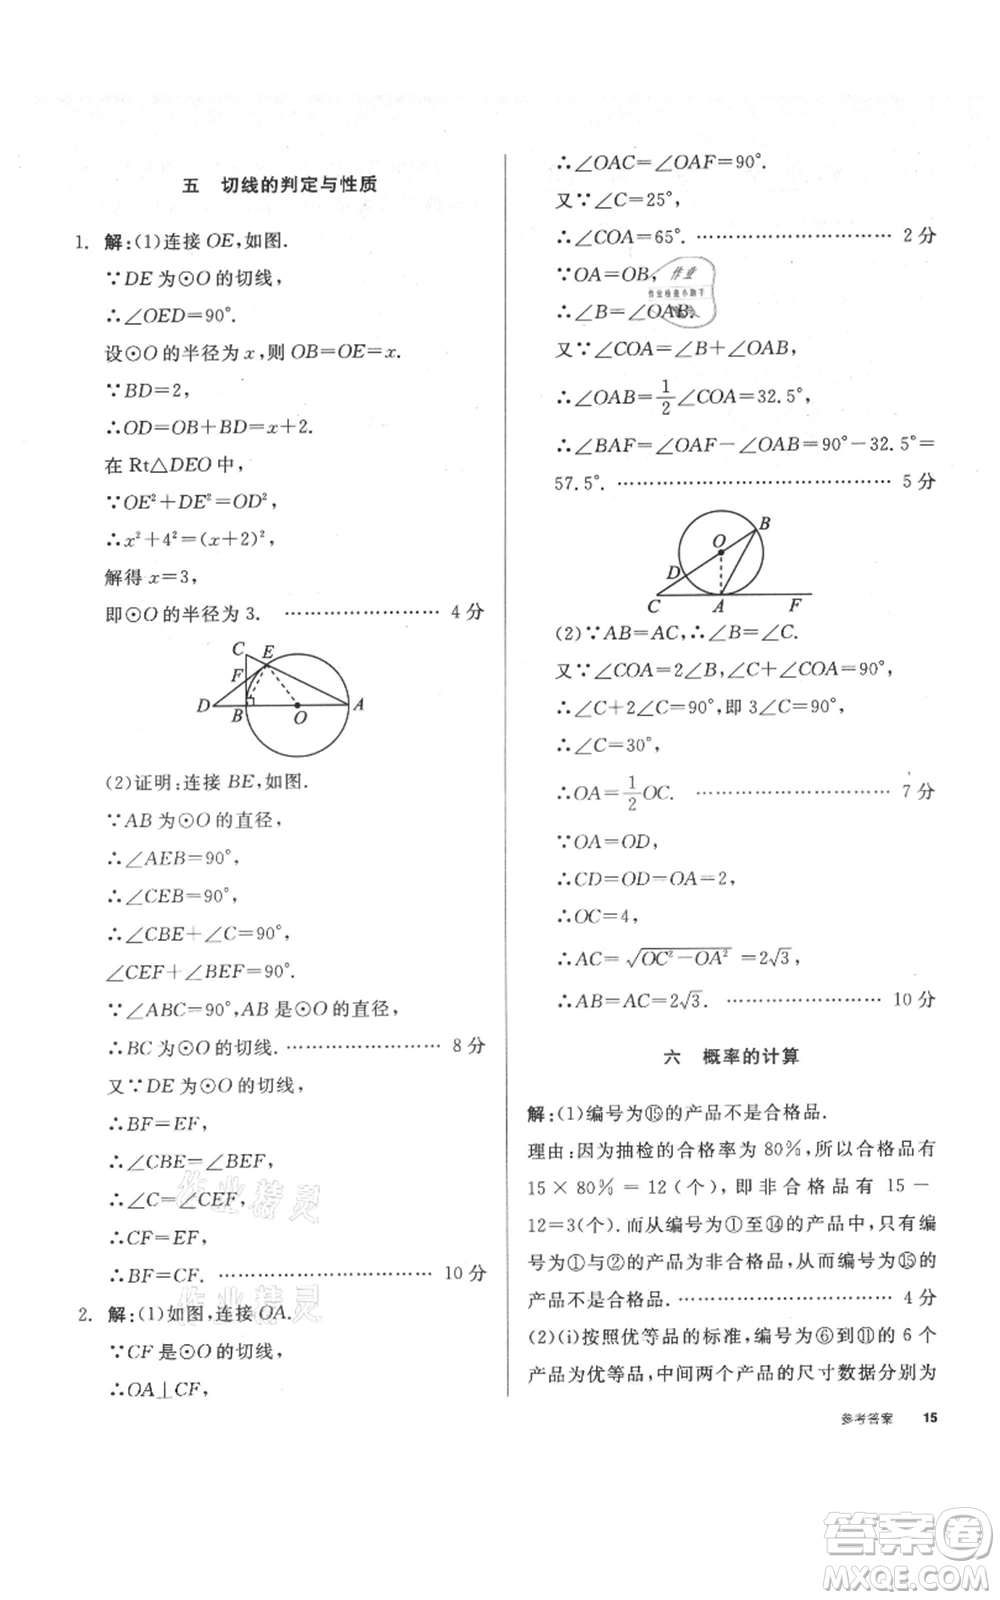 五 切线的判定与性质
1. 解:(1)连接 OE,如图.
∵DE 为⊙O 的切线,
∴∠OED=90°.
设⊙O 的半径为 x,则 OB=OE=x.
∵BD=2,
∴OD=OB+BD=x+2.
在 Rt△DEO 中,
∵OE²+DE²=OD²,
∴x²+4²=(x+2)²,
解得 x=3,
即⊙O 的半径为 3. …………………… 4 分
C E
F
D B O A
(2)证明:连接 BE,如图.
∵AB 为⊙O 的直径,
∴∠AEB=90°,
∴∠CEB=90°,
∴∠CBE+∠C=90°,
∠CEF+∠BEF=90°.
∵∠ABC=90°,AB 是⊙O 的直径,
∴BC 为⊙O 的切线. …………………… 8 分
又∵DE 为⊙O 的切线,
∴BF=EF,
∴∠CBE=∠BEF,
∴∠C=∠CEF,
∴CF=EF,
∴BF=CF. …………………………… 10 分
2. 解:(1)如图,连接 OA.
∵CF 是⊙O 的切线,
∴OA⊥CF,
∴∠OAC=∠OAF=90°.
又∵∠C=25°,
∴∠COA=65°. ………………………… 2 分
∵OA=OB,
∴∠B=∠OAB.
又∵∠COA=∠B+∠OAB,
∴∠OAB=1/2∠COA=32.5°,
∴∠BAF=∠OAF−∠OAB=90°−32.5°=
57.5°. …………………………………… 5 分
B
O
D
C A F
(2)∵AB=AC,∴∠B=∠C.
又∵∠COA=2∠B,∠C+∠COA=90°,
∴∠C+2∠C=90°,即 3∠C=90°,
∴∠C=30°,
∴OA=1/2OC. ………………………… 7 分
∵OA=OD,
∴CD=OD=OA=2,
∴OC=4,
∴AC=√(OC²−OA²)=2√3,
∴AB=AC=2√3. …………………… 10 分
六 概率的计算
解:(1)编号为⑮的产品不是合格品.
理由:因为抽检的合格率为 80%,所以合格品有
15×80%=12(个),即非合格品有 15−
12=3(个).而从编号为①至⑭的产品中,只有编
号为①与②的产品为非合格品,从而编号为⑮的
产品不是合格品. ……………………… 4 分
(2)(i)按照优等品的标准,编号为⑥到⑪的 6 个
产品为优等品,中间两个产品的尺寸数据分别为
参考答案 15
作业
作业检查小助手
作业精灵
作业精灵
答案卷
MXQE.COM